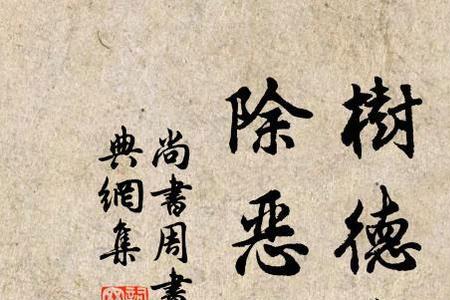 樹德
除恶
尚書周書
典網集